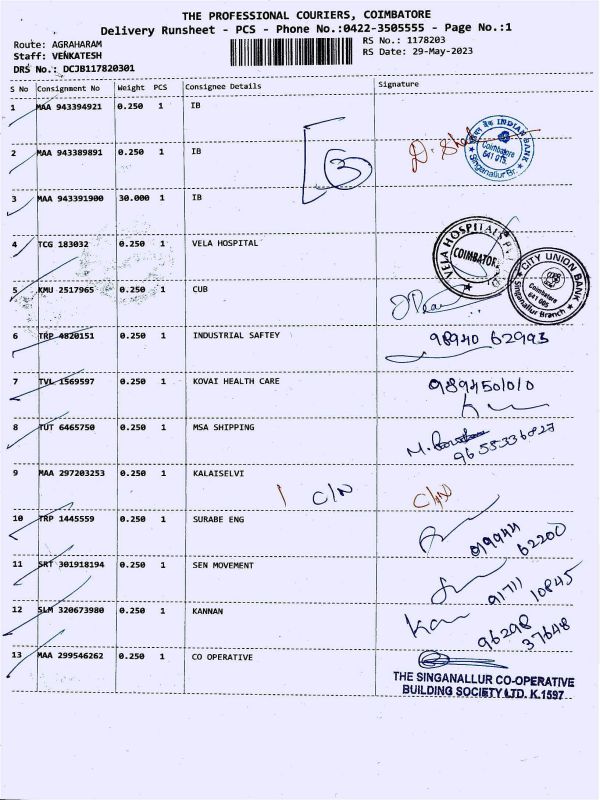 THE PROFESSIONAL COURIERS, COIMBATORE
Delivery Runsheet - PCS - Phone No.:0422-3505555 - Page No.:1
Route: AGRAHARAM
RS No.: 1178203
Staff: VENKATESH
RS Date: 29-May-2023
DRS No.: DCJB117820301
S No Consignment No Weight PCS Consignee Details Signature
1 MAA 943394921 0.250 1 IB
2 MAA 943389891 0.250 1 IB
3
INDIAN BANK
Coimbatore
Singanallur Br.
3 MAA 943391900 30.000 1 IB
4 TCG 183032 0.250 1 VELA HOSPITAL
VELA HOSPITALS
COIMBATORE
5 KMU 2517965 0.250 1 CUB
CITY UNION BANK
Coimbatore
641 005
Singanallur Branch
6 TRP 4820151 0.250 1 INDUSTRIAL SAFTEY 98940 62993
7 TVL 1569597 0.250 1 KOVAI HEALTH CARE 9894501010
8 TUT 6465750 0.250 1 MSA SHIPPING
9 MAA 297203253 0.250 1 KALAISELVI
C/N C/N
10 TRP 1445559 0.250 1 SURABE ENG
62200
11 SRT 301918194 0.250 1 SEN MOVEMENT
91711
10845
12 SLM 320673980 0.250 1 KANNAN
96298
37648
13 MAA 299546262 0.250 1 CO OPERATIVE
THE SINGANALLUR CO-OPERATIVE
BUILDING SOCIETY LTD. K.1597